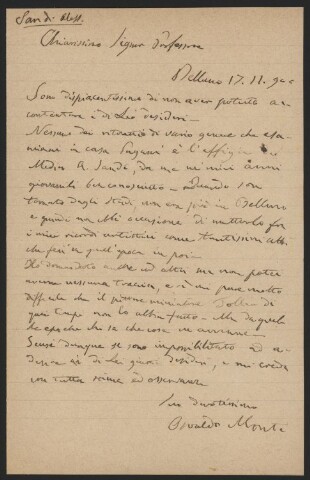 Sandi Aless.
Chiarissimo Signor Professore
Belluno 17. 11. 900
Sono dispiacentissimo di non aver potuto ac-
contentare i di Lei desideri -
Nessuno dei ritratti di vario genere che esa-
minai in casa Pagani è l'effigie del
Medico A. Sandi, da me nei miei anni
giovanili ben conosciuto - Quando son
tornato dagli studi, non era più in Belluno
e quindi non ebbi occasione di metterlo fra
i miei ricordi artistici come tantissimi altri
che feci in quell'epoca in poi -
Ho domandato anche ad altri ma non potei
averne nessuna traccia, e mi pare molto
difficile che il pittore miniatore
quel capo non lo abbia fatto - Ma da quel-
le epoche chi sa che cosa ne avvenne -
Scusi dunque se sono impossibilitato ad
di Lei desideri, e mi creda
con tutta stima ed osservanza
Suo devotissimo
Osvaldo Monti